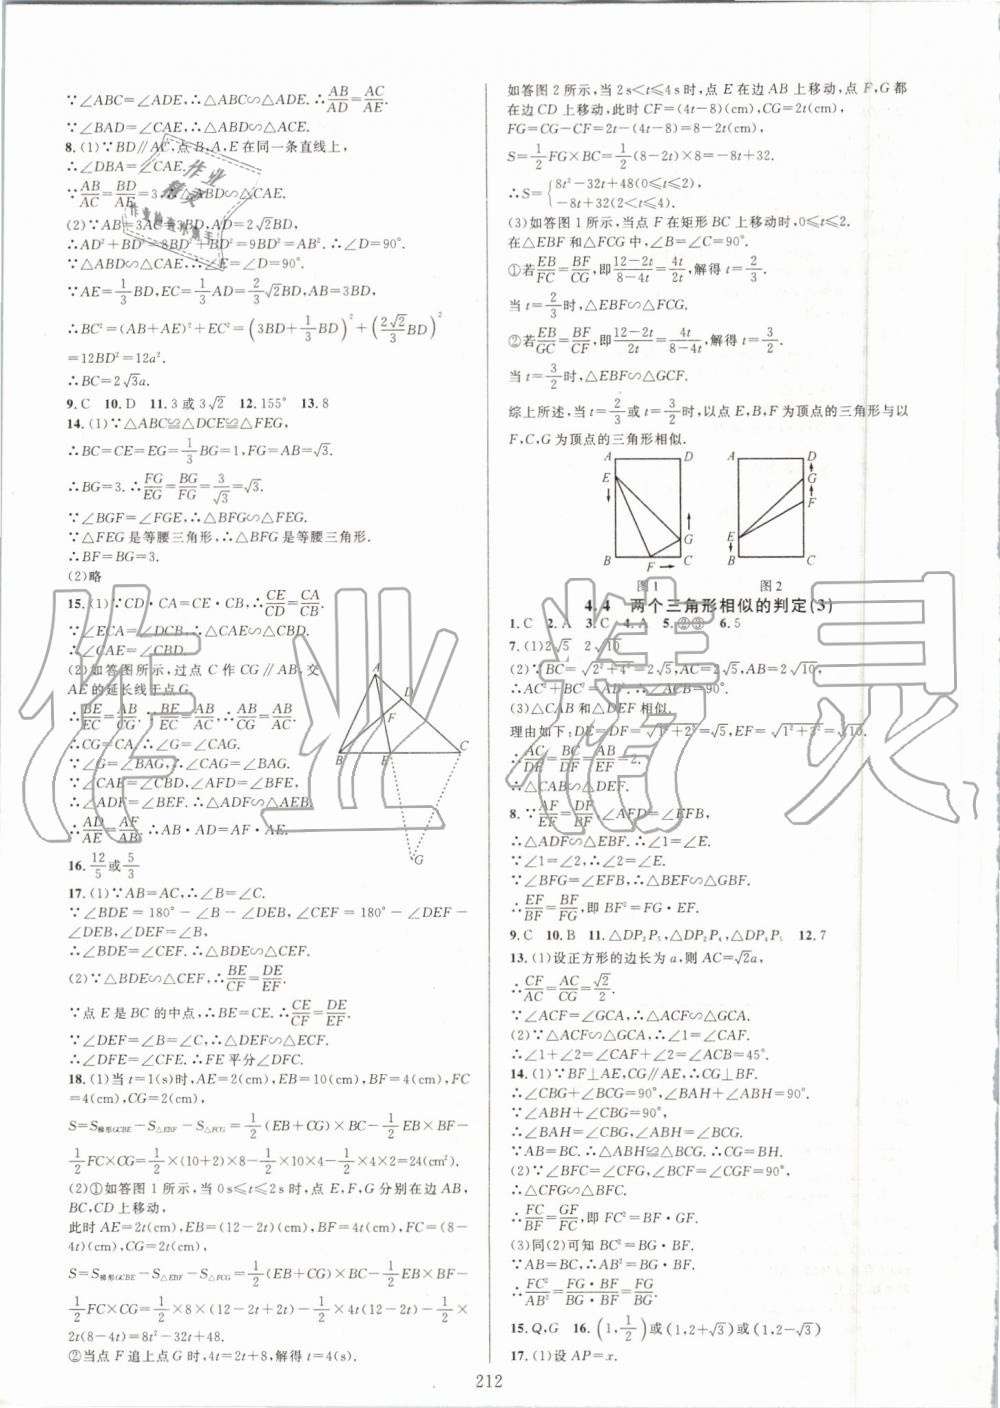 ∵∠ABC=∠ADE,∴△ABC∽△ADE.∴AB/AD=AC/AE.
∵∠BAD=∠CAE,∴△ABD∽△ACE.
8.(1)∵BD∥AC,点B,A,E在同一条直线上,
∴∠DBA=∠CAE.
∵AB/AC=BD/AE=3,∴△ABD∽△CAE.
(2)∵AB=3AC=3BD,AD=2√2BD,
∴AD²+BD²=8BD²+BD²=9BD²=AB².∴∠D=90°.
∵△ABD∽△CAE,∴∠E=∠D=90°.
∵AE=1/3BD,EC=1/3AD=2/3√2BD,AB=3BD,
∴BC²=(AB+AE)²+EC²=(3BD+1/3BD)²+(2√2/3BD)²
=12BD²=12a².
∴BC=2√3a.
9.C 10.D 11.3或3√2 12.155° 13.8
14.(1)∵△ABC≌△DCE≌△FEG,
∴BC=CE=EG=1/3BG=1,FG=AB=√3.
∴BG=3.∴FG/EG=BG/FG=3/√3=√3.
∵∠BGF=∠FGE,∴△BFG∽△FEG.
∵△FEG是等腰三角形,∴△BFG是等腰三角形.
∴BF=BG=3.
(2)略
15.(1)∵CD·CA=CE·CB,∴CE/CD=CA/CB.
∵∠ECA=∠DCB,∴△CAE∽△CBD.
∴∠CAE=∠CBD.
(2)如答图所示,过点C作CG∥AB,交
AE的延长线于点G.
∴BE/EC=AB/CG.∵BE/EC=AB/AC,∴AB/CG=AB/AC.
∴CG=CA.∴∠G=∠CAG.
∵∠G=∠BAG,∴∠CAG=∠BAG.
∵∠CAE=∠CBD,∠AFD=∠BFE,
∴∠ADF=∠BEF.∴△ADF∽△AEB.
∴AD/AE=AF/AB.∴AB·AD=AF·AE.
A
D
F
B
E
C
G
16.12/5或5/3
17.(1)∵AB=AC,∴∠B=∠C.
∵∠BDE=180°-∠B-∠DEB,∠CEF=180°-∠DEF-
∠DEB,∠DEF=∠B,
∴∠BDE=∠CEF.∴△BDE∽△CEF.
(2)∵△BDE∽△CEF,∴BE/CF=DE/EF.
∵点E是BC的中点,∴BE=CE.∴CE/CF=DE/EF.
∵∠DEF=∠B=∠C,∴△DEF∽△ECF.
∴∠DFE=∠CFE.∴FE平分∠DFC.
18.(1)当t=1(s)时,AE=2(cm),EB=10(cm),BF=4(cm),FC
=4(cm),CG=2(cm),
S=S梯形GCBE-S△EBF-S△FCG=1/2(EB+CG)×BC-1/2EB×BF-
1/2FC×CG=1/2×(10+2)×8-1/2×10×4-1/2×4×2=24(cm²).
(2)①如答图1所示,当0s≤t≤2s时,点E,F,G分别在边AB,
BC,CD上移动,
此时AE=2t(cm),EB=(12-2t)(cm),BF=4t(cm),FC=(8-
4t)(cm),CG=2t(cm),
S=S梯形GCBE-S△EBF-S△FCG=1/2(EB+CG)×BC-1/2EB×BF-
1/2FC×CG=1/2×8×(12-2t+2t)-1/2×4t(12-2t)-1/2×
2t(8-4t)=8t²-32t+48.
②当点F追上点G时,4t=2t+8,解得t=4(s).
如答图2所示,当2s<t≤4s时,点E在边AB上移动,点F,G都
在边CD上移动,此时CF=(4t-8)(cm),CG=2t(cm),
FG=CG-CF=2t-(4t-8)=8-2t(cm),
S=1/2FG×BC=1/2(8-2t)×8=-8t+32.
∴S={8t²-32t+48(0≤t≤2),
-8t+32(2<t≤4).
(3)如答图1所示,当点F在矩形BC上移动时,0≤t≤2.
在△EBF和△FCG中,∠B=∠C=90°.
①若EB/FC=BF/CG,即(12-2t)/(8-4t)=4t/2t,解得t=2/3.
当t=2/3时,△EBF∽△FCG.
②若EB/GC=BF/CF,即(12-2t)/2t=4t/(8-4t),解得t=3/2.
当t=3/2时,△EBF∽△GCF.
综上所述,当t=2/3或t=3/2时,以点E,B,F为顶点的三角形与以
F,C,G为顶点的三角形相似.
A D A D
E G
F
G E
B F C B C
图1 图2
4.4 两个三角形相似的判定(3)
1.C 2.A 3.C 4.A 5.②③ 6.5
7.(1)2√5 2√10
(2)∵BC=√(2²+4²)=2√5,AC=2√5,AB=2√10,
∴AC²+BC²=AB².∴∠ACB=90°.
(3)△CAB和△DEF相似.
理由如下:DE=DF=√(1²+2²)=√5,EF=√(1²+3²)=√10.
∴AC/DE=BC/DF=AB/EF=2.
∴△CAB∽△DEF.
8.∵AF/EF=DF/BF,∠AFD=∠EFB,
∴△ADF∽△EBF.∴∠1=∠E.
∵∠1=∠2,∴∠2=∠E.
∵∠BFG=∠EFB,∴△BEF∽△GBF.
∴EF/BF=BF/FG,即BF²=FG·EF.
9.C 10.B 11.△DP₂P₅,△DP₂P₄,△DP₄P₅ 12.7
13.(1)设正方形的边长为a,则AC=√2a,
∴CF/AC=AC/CG=√2/2.
∵∠ACF=∠GCA,∴△ACF∽△GCA.
(2)∵△ACF∽△GCA,∴∠1=∠CAF.
∴∠1+∠2=∠CAF+∠2=∠ACB=45°.
14.(1)∵BF⊥AE,CG∥AE,∴CG⊥BF.
∴∠CBG+∠BCG=90°,∠BAH+∠ABH=90°.
∵∠ABH+∠CBG=90°,
∴∠BAH=∠CBG,∠ABH=∠BCG.
∵AB=BC.∴△ABH≌△BCG.∴CG=BH.
(2)∵∠BFC=∠CFG,∠BCF=∠CGF=90°,
∴△CFG∽△BFC.
∴FC/BF=GF/FC,即FC²=BF·GF.
(3)同(2)可知BC²=BG·BF.
∵AB=BC,∴AB²=BG·BF.
∴FC²/AB²=FG·BF/BG·BF=FG/BG.
15.Q,G 16.(1,1/2)或(1,2+√3)或(1,2-√3)
17.(1)设AP=x.
212